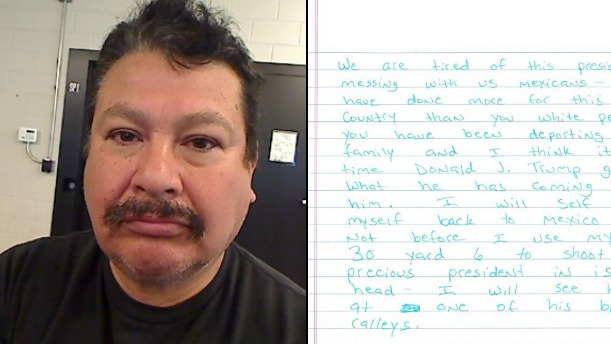 We are tired of this presid
messing with us mexicans -
have done more for this
Country than you white pe
you have been deporting
family and I think it
time Donald J. Trump g
What he has coming
him. I will self
myself back to mexico
Not before I use my
30 yard 6 to shoot
precious president in is
head - I will see h
at one of his b
ralleys.